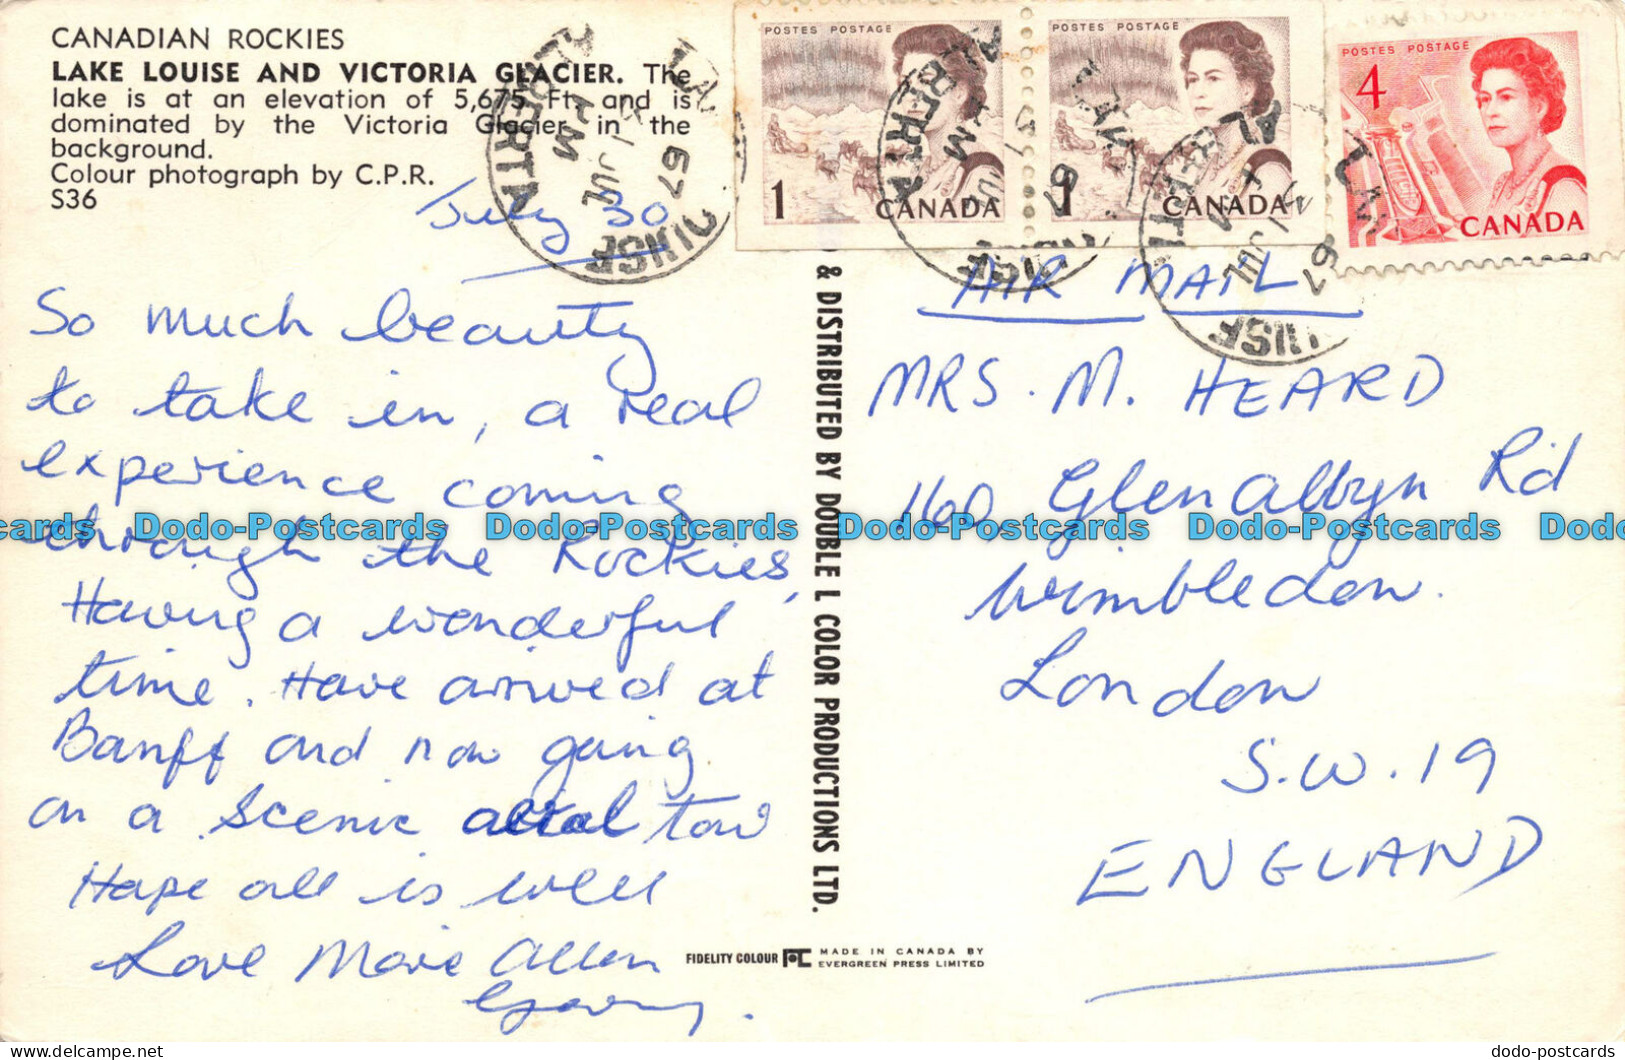 CANADIAN ROCKIES
LAKE LOUISE AND VICTORIA GLACIER. The
lake is at an elevation of 5,675 Ft. and is
dominated by the Victoria Glacier in the
background.
Colour photograph by C.P.R.
S36
July 30
So much beauty
to take in, a real
experience coming
through the Rockies,
Having a wonderful
time. Have arrived at
Banff and now going
on a scenic tour
Hope all is well
Love Marie Allen
Garry.
& DISTRIBUTED BY DOUBLE L COLOR PRODUCTIONS LTD.
FIDELITY COLOUR
MADE IN CANADA BY
EVERGREEN PRESS LIMITED
POSTES POSTAGE
1 CANADA
POSTES POSTAGE
1 CANADA
POSTES POSTAGE
4
CANADA
ALBERTA
PM
1 JUL
67
LOUISE
AIR MAIL
MRS. M. HEARD
160, Glenalbyn Rd
Wimbledon.
London
S.W.19
ENGLAND
Dodo-Postcards Dodo-Postcards Dodo-Postcards Dodo-Postcards
dodo-postcards.com